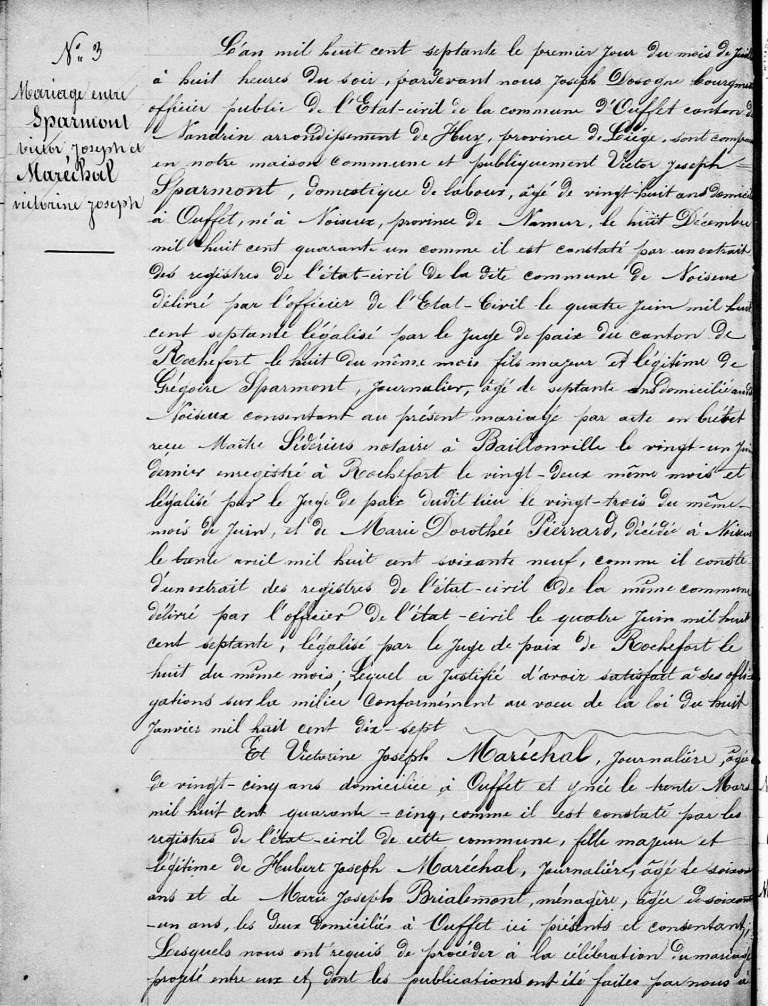 N° 3
Mariage entre
Sparmont
victor Joseph et
Maréchal
victorine Joseph
L'an mil huit cent septante le premier jour du mois de Juill
à huit heures du soir, pardevant nous Joseph Dosogne bourgmes
officier public de l'Etat-civil de la commune d'Ouffet canton de
Nandrin arrondissement de Huy, province de Liége, sont compar
en notre maison commune et publiquement Victor Joseph
Sparmont, domestique de labour, âgé de vingt huit ans domicil
à Ouffet, né à Noiseux, province de Namur, le huit Décembre
mil huit cent quarante un comme il est constaté par un extrait
des registres de l'état-civil de la dite commune de Noiseux
délivré par l'officier de l'Etat-Civil le quatre Juin mil huit
cent septante légalisé par le Juge de paix du canton de
Rochefort le huit du même mois fils majeur et légitime de
Grégoire Sparmont, Journalier, âgé de septante ans domicilié audit
Noiseux consentant au présent mariage par acte en brévet
reçu Maître Sidérius notaire à Baillonville le vingt-un Juin
dernier enregistré à Rochefort le vingt-deux même mois et
légalisé par le Juge de paix dudit lieu le vingt-trois du même
mois de Juin, et de Marie Dorothée Piérrard, décédée à Noiseux
le trente avril mil huit cent soixante neuf, comme il conste
d'un extrait des registres de l'état-civil de la même commune
délivré par l'officier de l'état-civil le quatre Juin mil huit
cent septante, légalisé par le Juge de paix de Rochefort le
huit du même mois; Lequel a Justifié d'avoir satisfait à ses obli-
gations sur la milice conformément au vœu de la loi du huit
Janvier mil huit cent dix-sept
Et Victorine Joseph Maréchal, Journalière, âgée
de vingt-cinq ans domiciliée à Ouffet et y née le trente Mars
mil huit cent quarante-cinq, comme il est constaté par les
registres de l'état-civil de cette commune, fille majeure et
légitime de Hubert Joseph Maréchal, Journalier, âgé de soixan
ans et de Marie Joseph Brialmont, ménagère, âgée de soixante
-un ans, les deux domiciliés à Ouffet ici présents et consentant;
Lesquels nous ont requis de procéder à la célébration du mariage
projeté entre eux et dont les publications ont été faites par nous à